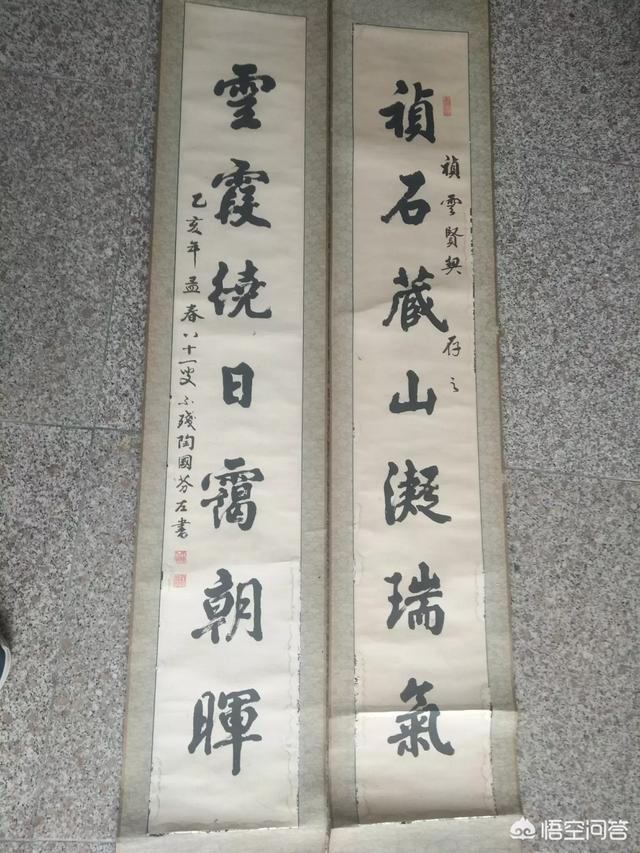 禎石藏山凝瑞氣
禎雲賢契存之
雲霞繞日靄朝暉
乙亥年孟春八十一叟不殘陶國芬左書
悟空问答